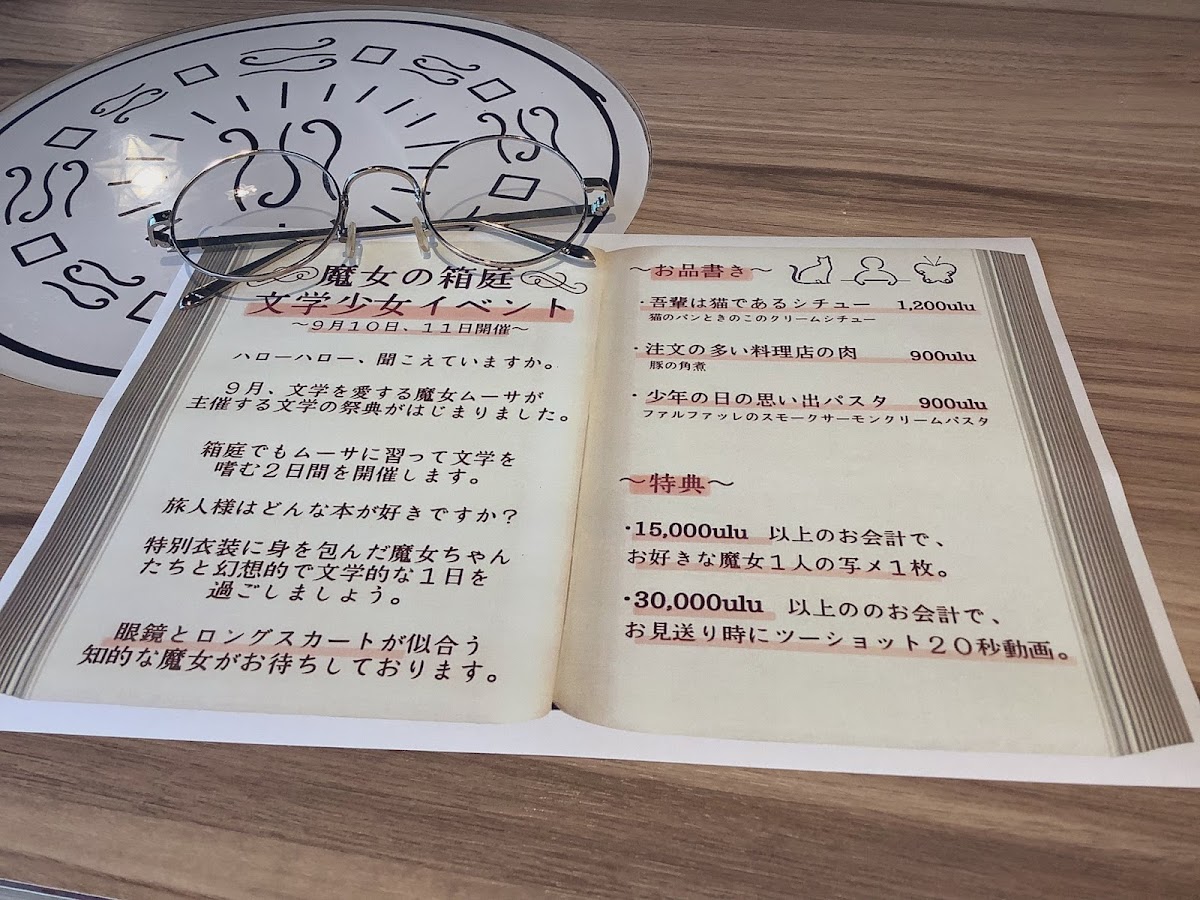 魔女の箱庭
文学少女イベント
～9月10日、11日開催～
ハローハロー、聞こえていますか。
9月、文学を愛する魔女ムーサが
主催する文学の祭典がはじまりました。
箱庭でもムーサに習って文学を
嗜む2日間を開催します。
旅人様はどんな本が好きですか？
特別衣装に身を包んだ魔女ちゃん
たちと幻想的で文学的な1日を
過ごしましょう。
眼鏡とロングスカートが似合う
知的な魔女がお待ちしております。
～お品書き～
・吾輩は猫であるシチュー 1,200ulu
猫のパンときのこのクリームシチュー
・注文の多い料理店の肉 900ulu
豚の角煮
・少年の日の思い出パスタ 900ulu
ファルファッレのスモークサーモンクリームパスタ
～特典～
・15,000ulu 以上のお会計で、
お好きな魔女1人の写メ1枚。
・30,000ulu 以上ののお会計で、
お見送り時にツーショット20秒動画。